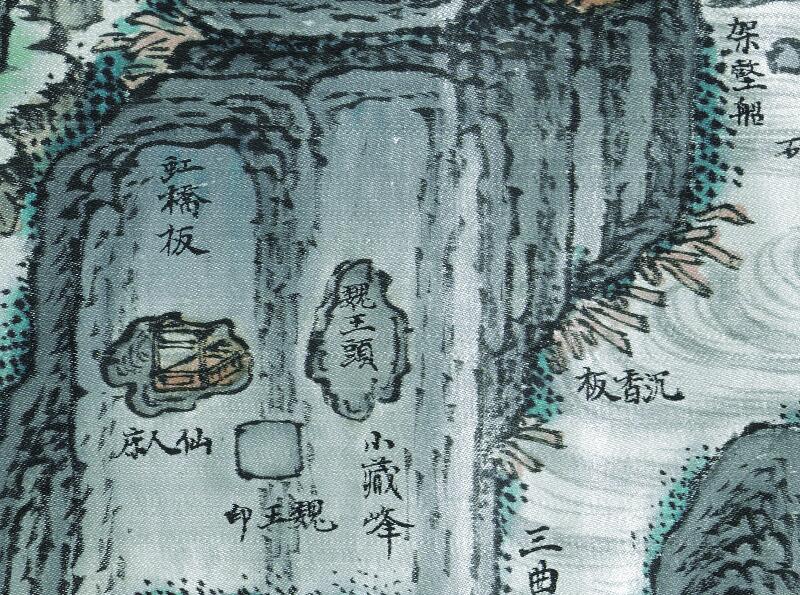 架壑船
石
虹橋板
魏王頭
沉香板
仙人床
小藏峰
魏王印
三曲